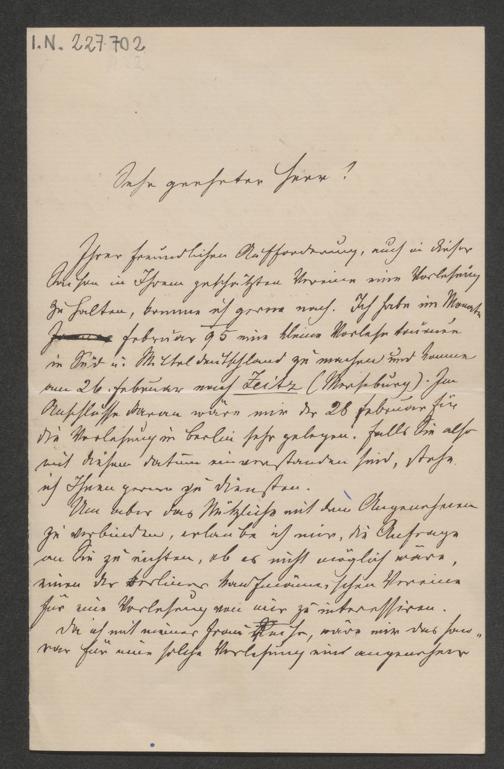 I.N. 227.702
Sehr geehrter Herr!
Ihrer freundlichen Aufforderung, auch in dieser
Saison in Ihrem geschätzten Vereine eine Vorlesung
zu halten, komme ich gerne nach. Ich habe im Monate
Februar 95 eine kleine Vorlese tournée
in Süd u. Mitteldeutschland zu machen und komme
am 26. Februar nach Zeitz (Merseburg). Im
Anschlusse daran wäre mir der 28 Februar für
die Vorlesung in Berlin sehr gelegen. Falls Sie also
mit diesem Datum einverstanden sind, stehe
ich Ihnen gerne zu Diensten.
Um aber das Nützliche mit dem Angenehmen
zu verbinden, erlaube ich mir, die Anfrage
an Sie zu richten, ob es nicht möglich wäre,
einen der Berliner kaufmännischen Vereine
für eine Vorlesung von mir zu interessiren.
Da ich mit meiner Frau reise, wäre mir das Hono„
rar für eine solche Vorlesung eine angenehme